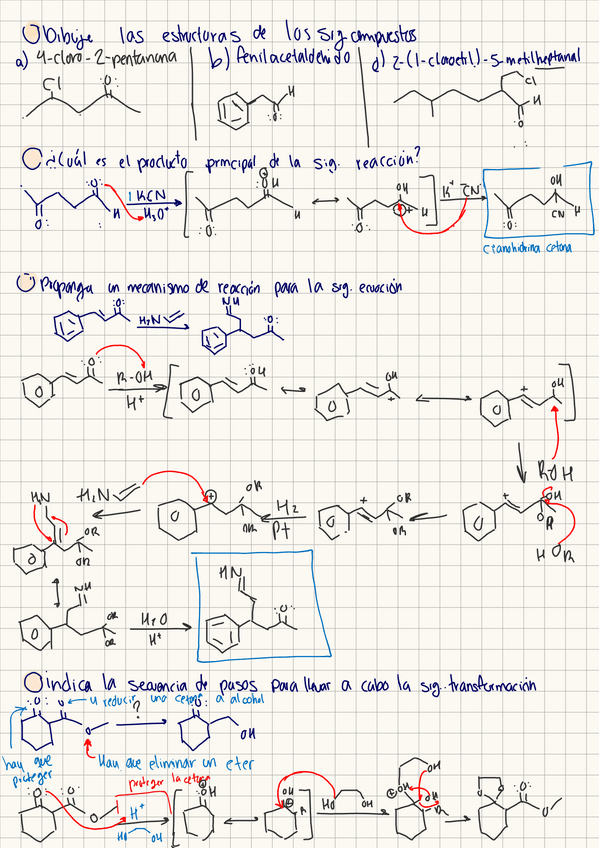 Dibuje las estructuras de los sig. compuestos
a) 4-cloro-2-pentanona b) fenilacetaldehido c) 2-(1-cloroetil)-5-metilheptanal
Cl :O: H :O: Cl H O
¿Cuál es el producto principal de la sig. reacción?
:O: H O: 1 KCN H3O+ OH H O: OH + H O: K+ -CN OH H CN O:
cianohidrina cetona
Proponga un mecanismo de reacción para la sig. ecuación
:O: H2N NH :O:
:O: R-OH H+ :OH OH + + OH
ROH
H2N H2N + OR OR H2 Pt + OR OR + OH OR H OR
OR OR
NH OR OR H2O H+ HN :O:
indica la secuencia de pasos para llevar a cabo la sig. transformación
:O: O ← 4 reducir una cetona a alcohol
O ? :O: OH
hay que proteger Hay que eliminar un eter
proteger la cetona
:O: O O H+ HO OH OH OH R HO OH OH OH R O O O O